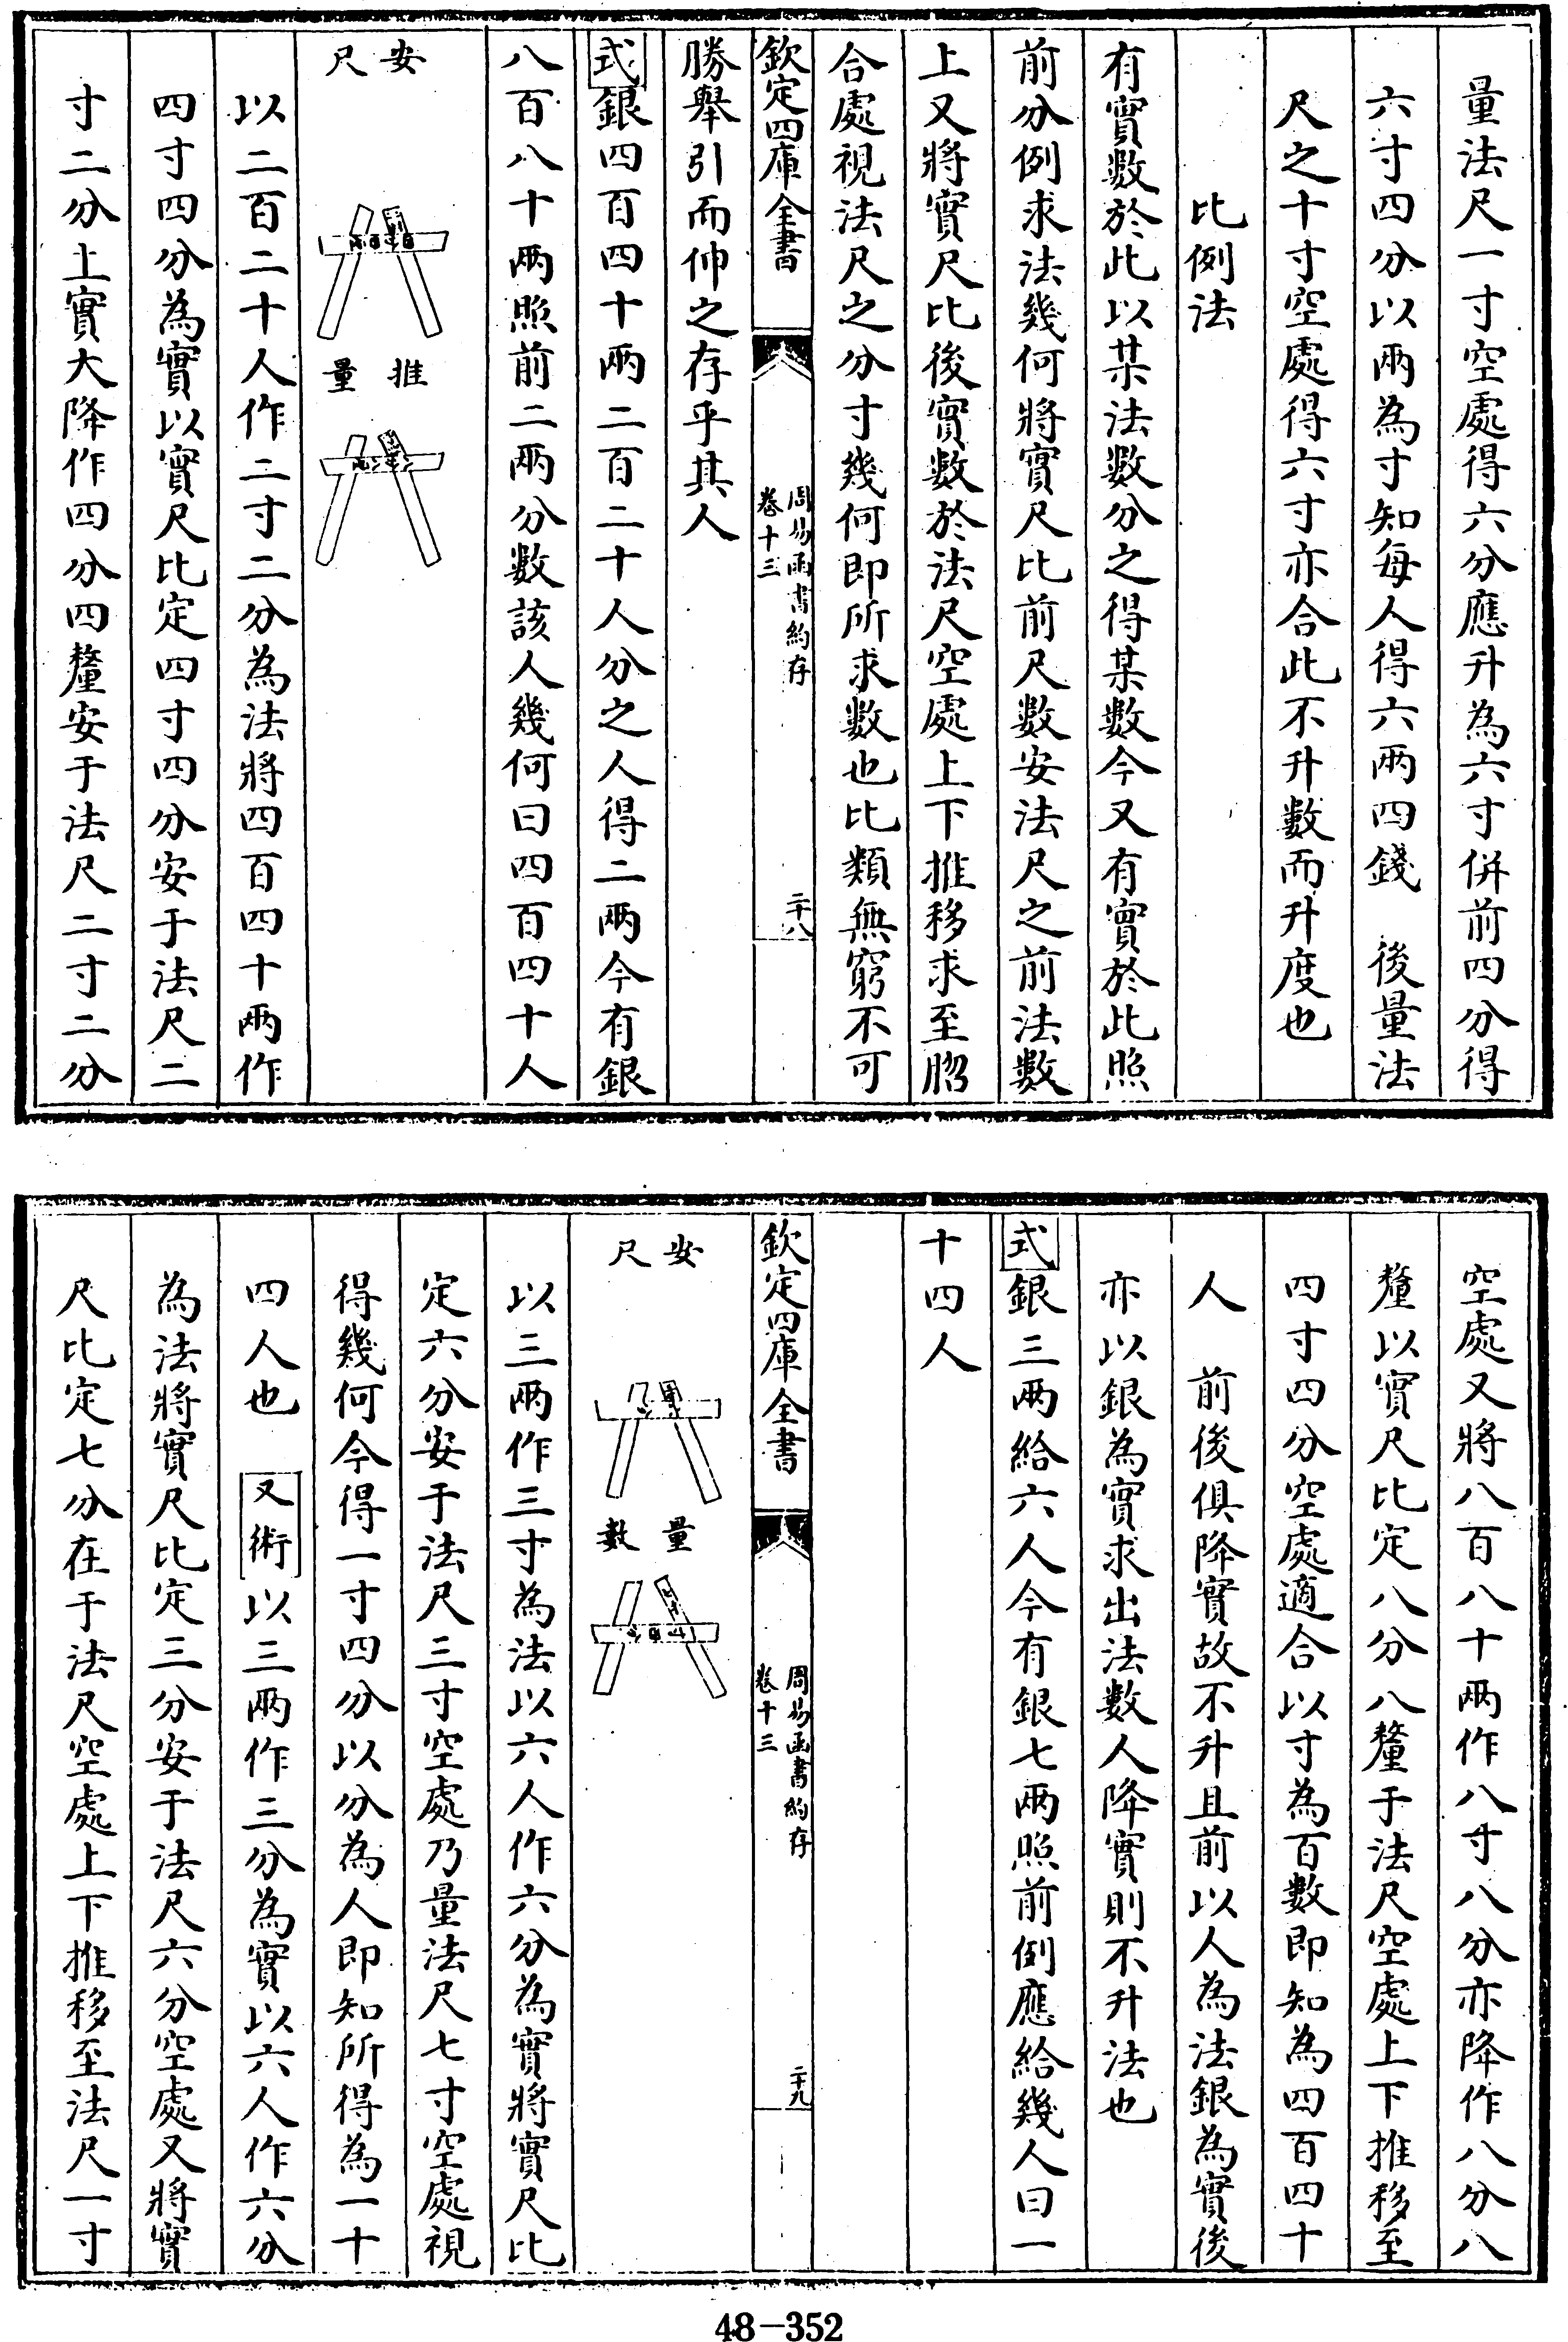 量法尺一寸空處得六分應升為六寸併前四分得
六寸四分以兩為寸知每人得六兩四錢　後量法
尺之十寸空處得六寸亦合此不升數而升度也
比例法
有實數於此以某法數分之得某數今又有實於此照
前分例求法幾何將實尺比前尺數安法尺之前法數
上又將實尺比後實數於法尺空處上下推移求至脗
合處視法尺之分寸幾何即所求數也比類無窮不可
欽定四庫全書
周易函書約存
卷十三
二十八
勝舉引而伸之存乎其人
式銀四百四十兩二百二十人分之人得二兩今有銀
八百八十兩照前二兩分數該人幾何曰四百四十人
安尺
推量
以二百二十人作二寸二分為法將四百四十兩作
四寸四分為實以實尺比定四寸四分安于法尺二
寸二分上實大降作四分四釐安于法尺二寸二分
空處又將八百八十兩作八寸八分亦降作八分八
釐以實尺比定八分八釐于法尺空處上下推移至
四寸四分空處適合以寸為百數即知為四百四十
人　前後俱降實故不升且前以人為法銀為實後
亦以銀為實求出法數人降實則不升法也
式銀三兩給六人今有銀七兩照前例應給幾人曰一
十四人
欽定四庫全書
周易函書約存
卷十三
二十九
安尺
量數
以三兩作三寸為法以六人作六分為實將實尺比
定六分安于法尺三寸空處乃量法尺七寸空處視
得幾何今得一寸四分以分為人即知所得為一十
四人也　又術以三兩作三分為實以六人作六分
為法將實尺比定三分安于法尺六分空處又將實
尺比定七分在于法尺空處上下推移至法尺一寸
48-352